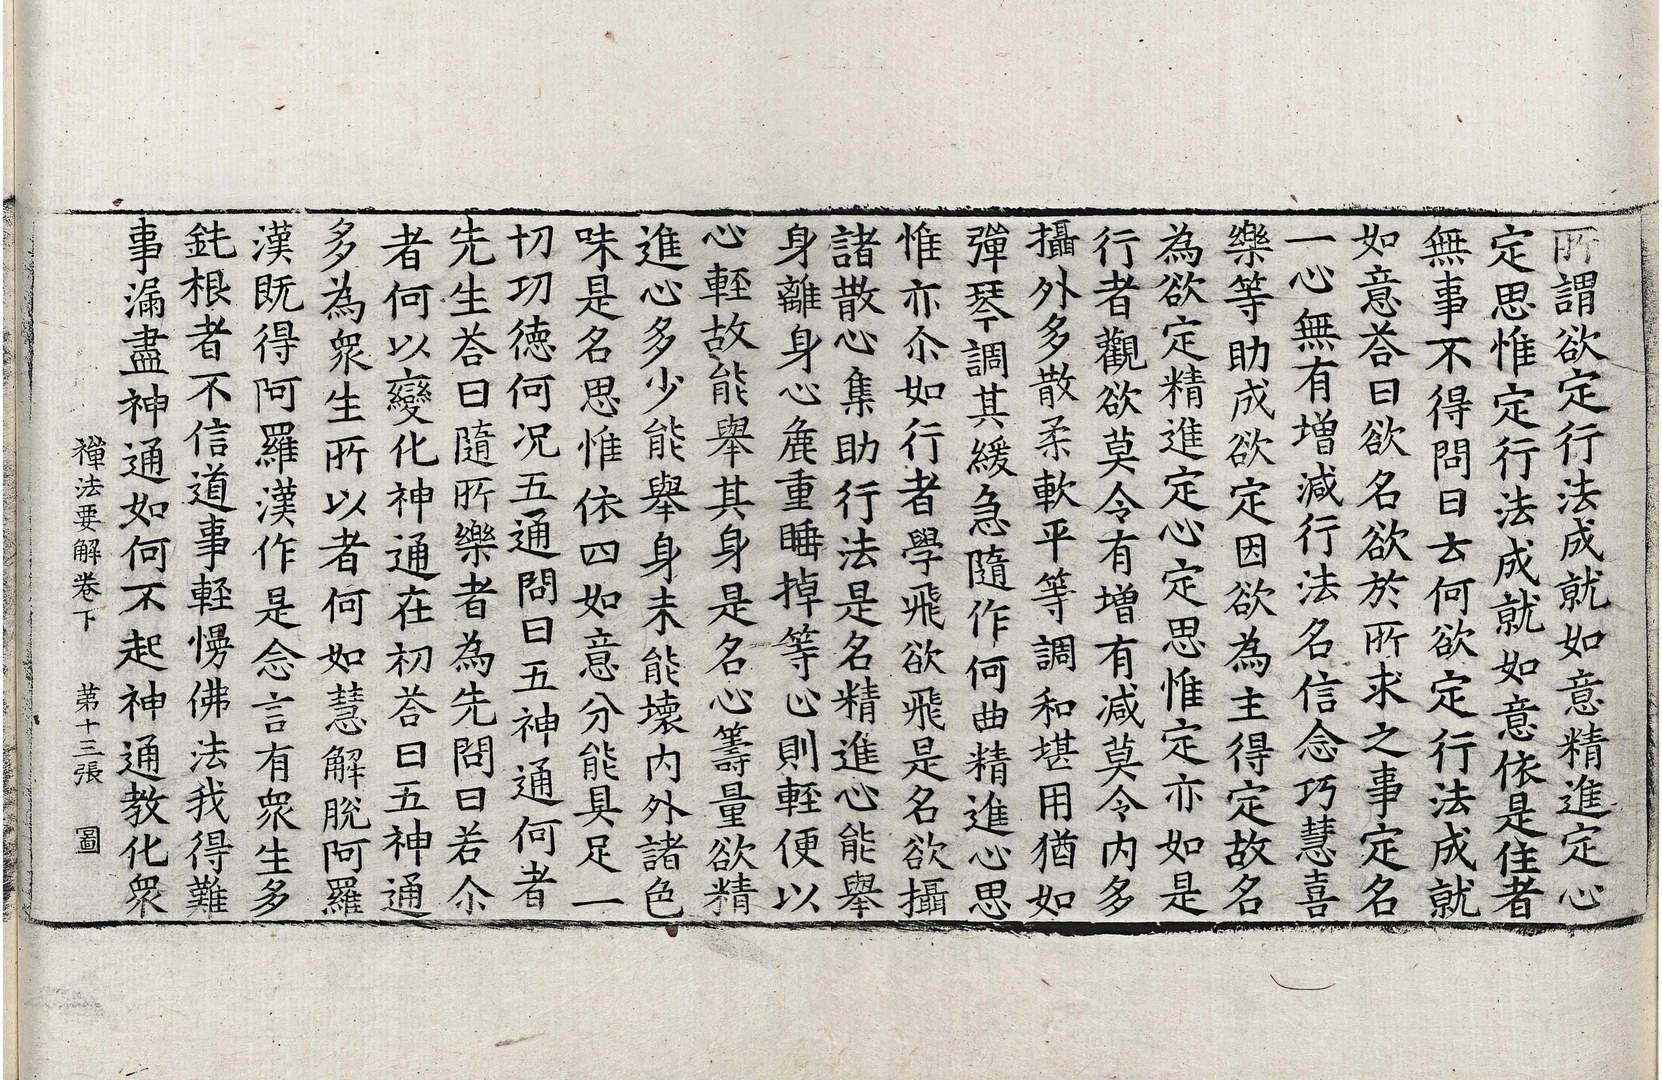 所謂欲定行法成就如意精進定心
定思惟定行法成就如意依是住者
無事不得問曰云何欲定行法成就
如意荅曰欲名欲於所求之事定名
一心無有增減行法名信念巧慧喜
樂等助成欲定因欲為主得定故名
為欲定精進定心定思惟定亦如是
行者觀欲莫令有增有減莫令內多
攝外多散柔軟平等調和堪用猶如
彈琴調其緩急隨作何曲精進心思
惟亦尒如行者學飛欲飛是名欲攝
諸散心集助行法是名精進心能舉
身離身心麁重睡掉等心則輕便以
心輕故能舉其身是名心籌量欲精
進心多少能舉身未能壞內外諸色
味是名思惟依四如意分能具足一
切功德何况五通問曰五神通何者
先生荅曰隨所樂者為先問曰若尒
者何以變化神通在初荅曰五神通
多為衆生所以者何如慧解脫阿羅
漢既得阿羅漢作是念言有衆生多
鈍根者不信道事輕慢佛法我得難
事漏盡神通如何不起神通教化衆
禪法要解卷下 第十三張 圖